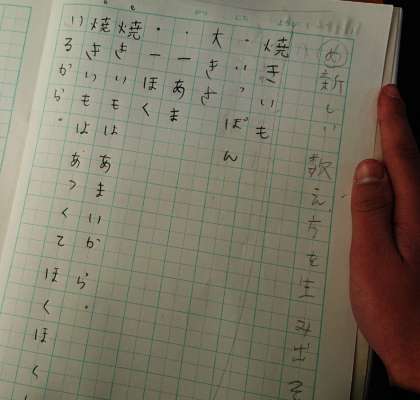 め 新しい数え方を生みだそ
焼きいも
・いっぽん
大きさ
・一あま
・一ほく
焼きいもはあまいから。
焼きいもはあつくてほくほく
いろから。